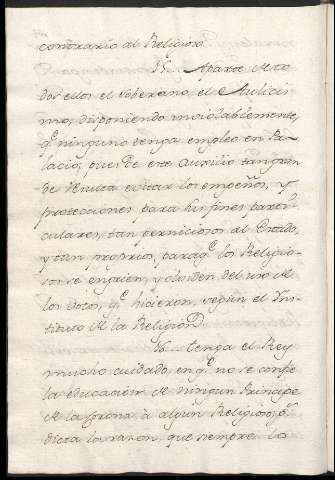 contrario al Religioso.
N... Aparte de to
dos ellos el soberano, el Aulicis
mo, disponiendo inviolablemente,
q.e ninguno tenga empleo en Pa
lacio; pues de este auxilio tan gran
de resulta evitar los empeños, y
protecciones, para his fines parti
culares, tan perniciosos al Estado,
y tan proprios, paraq.e los Religio
sos se engrien, y olviden del uso de
los votos, q.e hicieron, según el Ins
tituto de la Religion.
N... tenga el Rey
mucho cuidado, en q.e no se confie
la educación de ningun Principe
de la corona, à algun Religioso; q.e
dicta la razon, que siempre lo